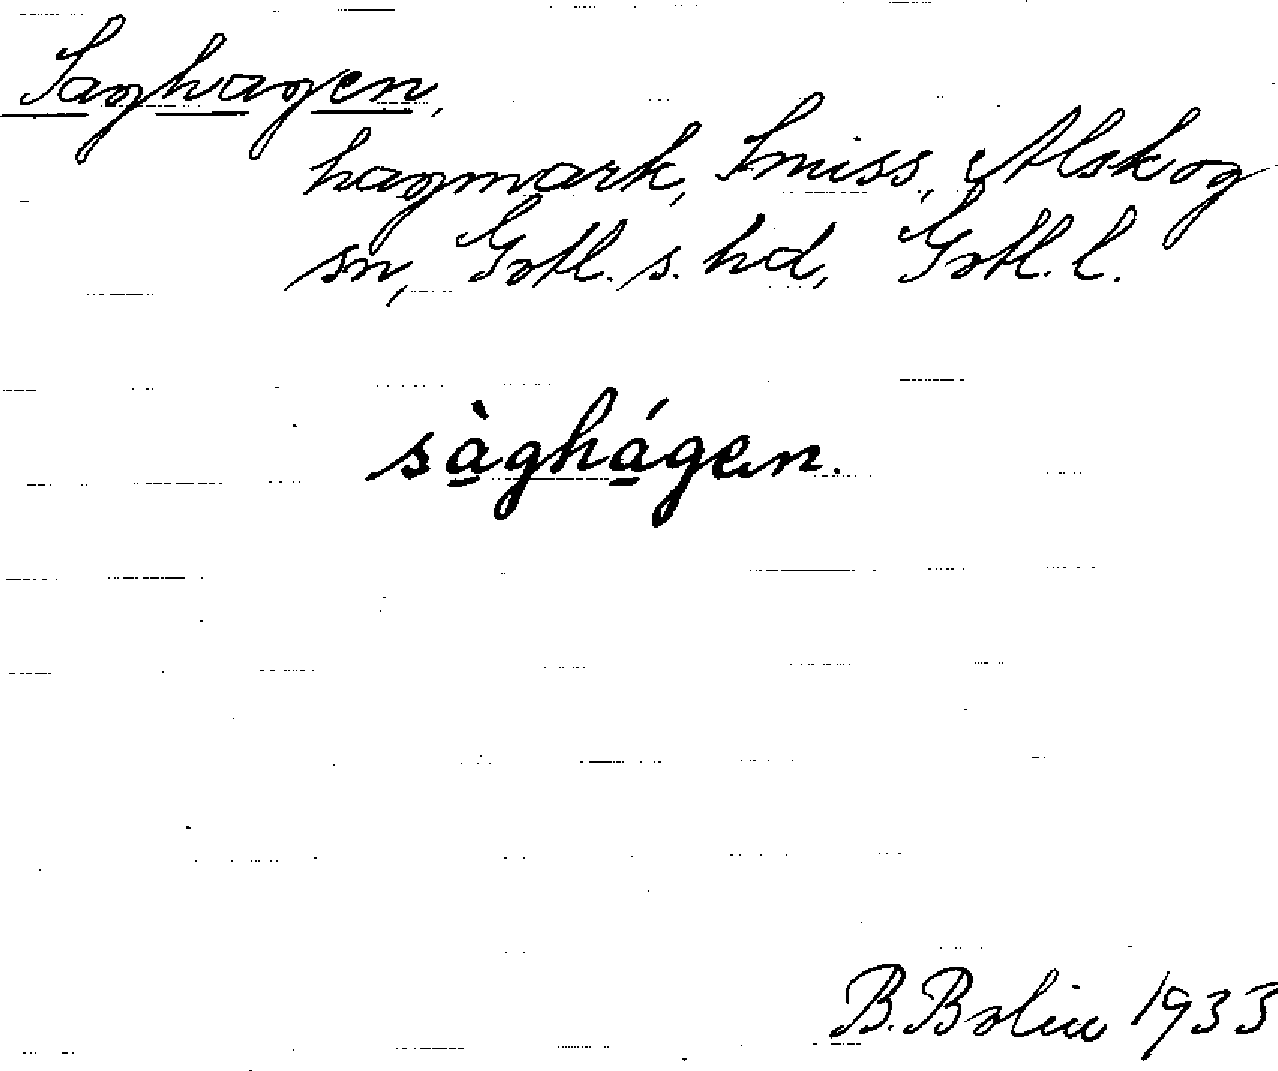 Saghagen,
hagmark, Smiss, Alskog
sn, Gotl. s. hd, Gotl. l.
sà̱ghá̱gen.
B. Bolin 1933